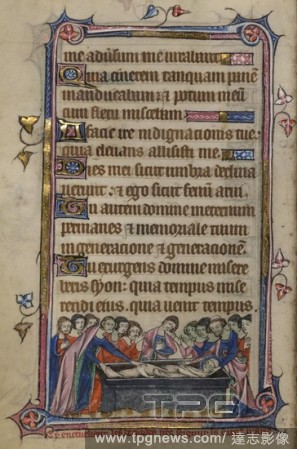 me adversum me iurabant
Quia cinerem tanquam panem
manducabam: & potum meu
cum fletu miscebam
A facie ire indignacionis tue:
quia elevans allisisti me
Dies mei sicut umbra declina
verunt: & ego sicut fenum arui
Tu autem domine in eternum
permanes & memoriale tuum
in generacione & generacionem
Tu exurgens domine misere
beris syon: quia tempus mise
rendi eius. quia venit tempus.
TPG
www.tpgnews.com/ 達志影像